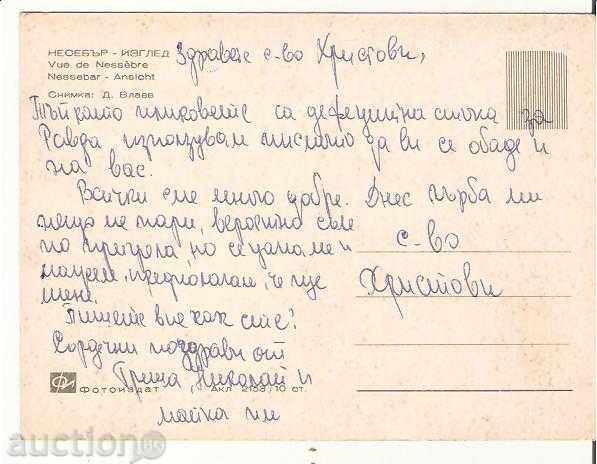 НЕСЕБЪР - ИЗГЛЕД
Vue de Nessèbre
Nessebar - Ansicht
Снимка: Д. Влаев
Здравейте с-во Христови,
Тъй като пликовете са дефицитна стока за
Равда използувам писмото да ви се обадя и
на вас.
Всички сме много добре. Днес гърба ми
нещо ме пари, вероятно съм
по прегоряла, но се
мажем, предполагам, че ще
мине.
Пишете вие как сте!
Сърдечни поздрави от
Гриша, Николай и
майка им
с-во
Христови
ФОТОИЗДАТ Акл 2103, 10 ст.
auction.BG